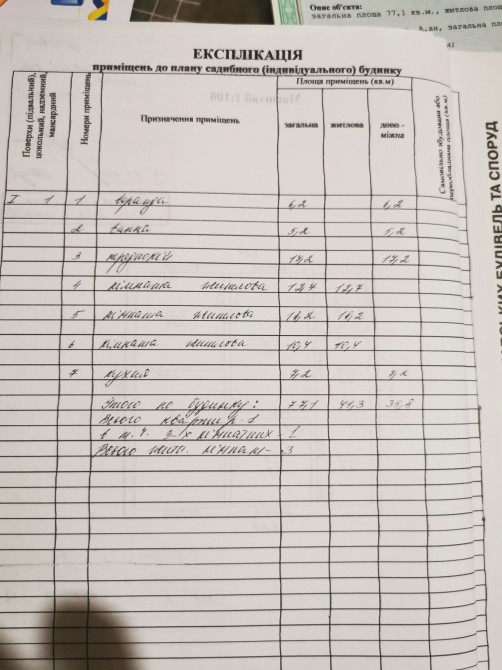 Опис об'єкта:
загальна площа 77,1 кв.м., житлова площ
ЕКСПЛІКАЦІЯ
приміщень до плану садибного (індивідуального) будинку
Поверхи (підвальний), цокольний, надземний, мансардний
Номери приміщень
Призначення приміщень
Площа приміщень (кв.м)
загальна
житлова
допо -
міжна
Самовільно збудована або
переобладнана площа (кв.м)
I 1 1 веранда 6,2 6,2
2 ванна 5,2 5,2
3 передпокій 17,2 17,2
4 кімната житлова 14,7 14,7
5 кімната житлова 16,2 16,2
6 кімната житлова 10,4 10,4
7 кухня 7,2 7,2
по будинку: 77,1 41,3 35,8
Всього квартир - 1
в т.ч. 3-х кімнатних - 1
Всього жит. кімнат - 3
КИХ БУДІВЕЛЬ ТА СПОРУД